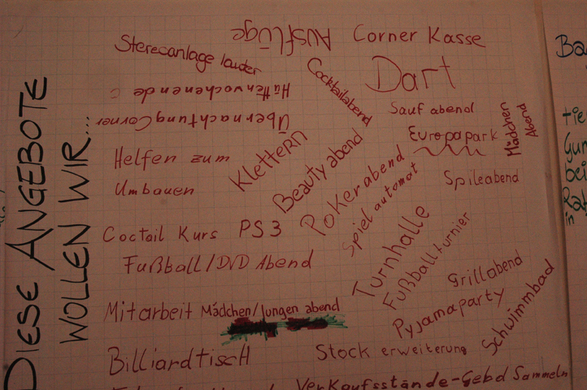 DIESE ANGEBOTE
WOLLEN WIR...
Ausflüge
Corner Kasse
Stereoanlage lauter
Cocktailabend
Dart
Hüttenwochenende
Sauf abend
Mädchen
Abend
Übernachtung Corner
Europapark
Klettern
Beauty abend
Helfen zum
Umbauen
Pokerabend
Spiel automat
Spileabend
Coctail Kurs
PS3
Turnhalle
Fußballturnier
Fußball/DVD Abend
Grillabend
Pyjamaparty
Schwimmbad
Mitarbeit
Mädchen/Jungen abend
Billiardtisch
Stock erweiterung
Verkaufsstände-Gebd Sammeln